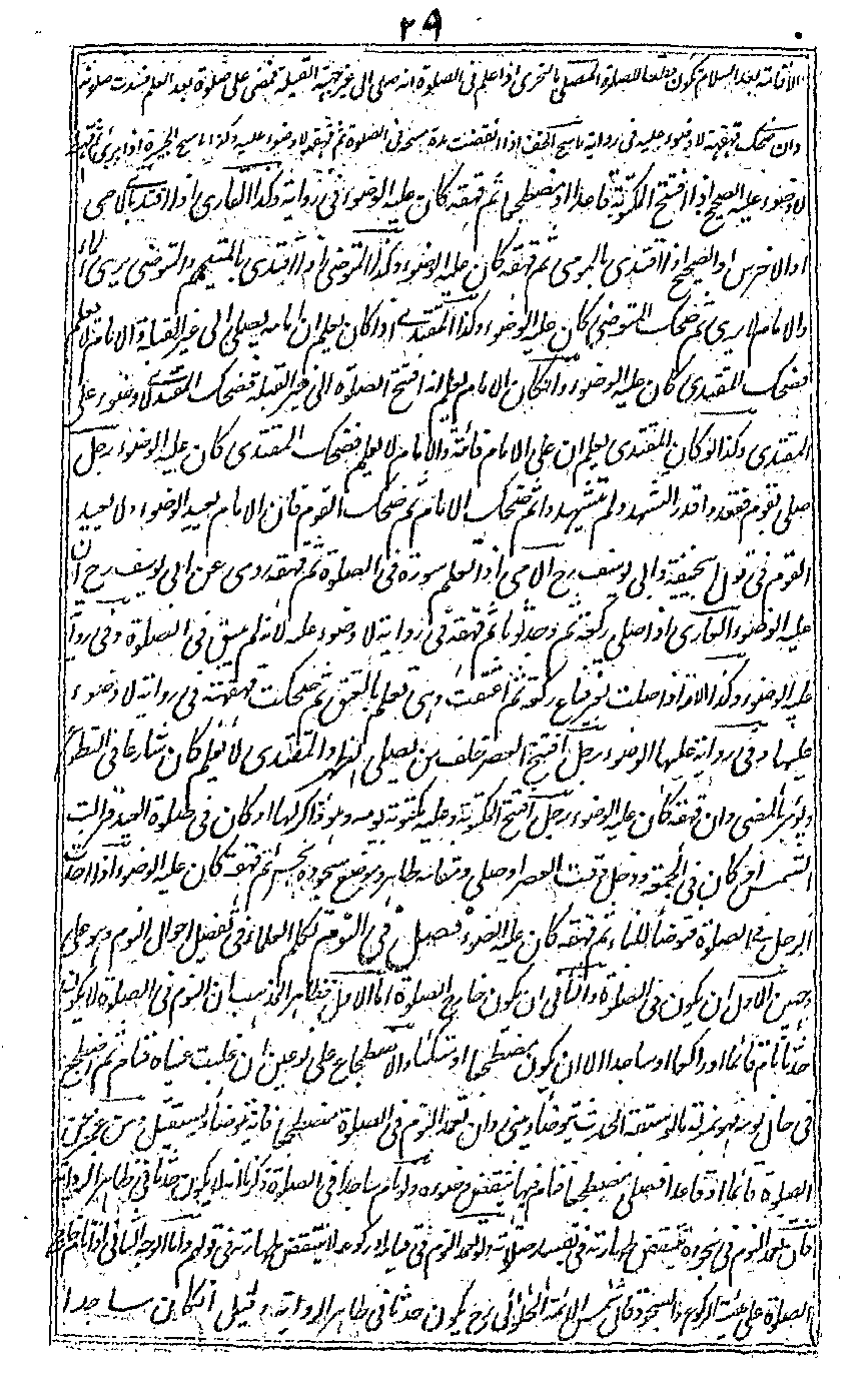 ٢٩
الافاقة بعد السلام يكون قطعا للصلاة المصلي بالتحري اذا علم في الصلوة انه صلى الى غير جهة القبلة فمضى على صلوة بعد العلم فسدت صلوته
وان ضحك قهقهة لا وضوء عليه في رواية ماسح الخف اذا انقضت مدة مسحه في الصلوة ثم قهقه لا وضوء عليه وكذا ماسح الجبيرة اذا برئ ثم قهقه
لا وضوء عليه الصحيح اذا افتتح المكتوبة قاعدا او مضطجعا ثم قهقه كان عليه الوضوء في رواية وكذا القارى اذا اقتدى بالامي
او الاخرس او الصحيح اذا اقتدى بالمومي ثم قهقه كان عليه الوضوء وكذا المتوضي اذا اقتدى بالمتيمم والمتوضي يرى الماء
والامام لا يرى ثم ضحك المتوضي كان عليه الوضوء وكذا المقتدي اذا كان يعلم ان امامه يصلي الى غير القبلة والامام لا يعلم
فضحك المقتدى كان عليه الوضوء وان كان الامام يعلم انه افتتح الصلوة الى غير القبلة فضحك المقتدي لا وضوء على
المقتدى وكذا لو كان المقتدى يعلم ان على الامام فائتة والامام لا يعلم فضحك المقتدى كان عليه الوضوء رجل
صلى بقوم فقعدوا قدر التشهد ولم يتشهدوا ثم ضحك الامام ثم ضحك القوم فان الامام يعيد الوضوء ولا يعيد
القوم في قول ابيحنيفة وابي يوسف رح الامي اذا تعلم سورة في الصلوة ثم قهقه روى عن ابي يوسف رح ان
عليه الوضوء العارى اذا صلى ركعة ثم وجد ثوبا ثم قهقه في رواية لا وضوء عليه لانه لم يبق في الصلوة وفي رواية
عليه الوضوء وكذا الامة اذا صلت بغير قناع ركعة ثم اعتقت وهي تعلم بالعتق ثم ضحكت قهقهة في رواية لا وضوء
عليها وفي رواية عليها الوضوء رجل افتتح العصر خلف من يصلي الظهر والمقتدى لا يعلم كان شارعا في التطوع
ويؤمر بالمضي وان قهقه كان عليه الوضوء رجل افتتح المكتوبة وعليه مكتوبة يومه وهو ذاكر لها او كان في صلوة العيد فزالت
الشمس او كان في الجمعة ودخل وقت العصر او صلى ومقامه طاهر وموضع سجوده نجس ثم قهقه كان عليه الوضوء اذا احدث
الرجل في الصلاة فتوضأ للبناء ثم قهقه كان عليه الوضوء فصيل في النوم تكلم العلماء في تفصيل احوال النوم وهو على
وجهين الاول ان يكون في الصلوة والثاني ان يكون خارج الصلوة اما الاول فظاهر المذهب ان النوم في الصلوة لا يكون
حدثا نام قائما او راكعا او ساجدا الا ان يكون مضطجعا او متكئا والاضطجاع على نوعين ان غلبت عيناه فنام ثم اضطجع
في حال نومه فهو بمنزلة ما لو سبقه الحدث يتوضأ ويبني وان تعمد النوم في الصلوة مضطجعا فانه يتوضأ ويستقبل ومن عجز عن
الصلوة قائما او قاعدا فصلى مضطجعا فنام فيها ينتقض وضوءه ولو نام ساجدا في الصلوة ذكرنا انه لا يكون حدثا في ظاهر الرواية
فان تعمد النوم في سجوده تنتقض طهارته وتفسد صلاته ولو تعمد النوم في قيامه او ركوعه لا تنتقض طهارته في قولهم واما الوجه الثاني اذا نام خارج
الصلوة على هيئة الركوع والسجود قال شمس الائمة الحلوائي رح يكون حدثا في ظاهر الرواية وقيل ان كان ساجدا